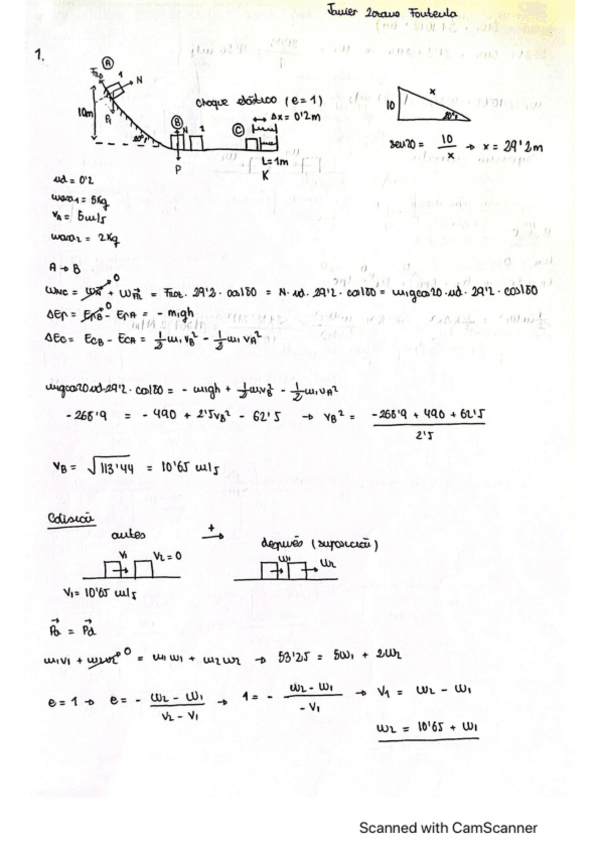 Javier Fontenla
1.
A
1
N
FROZ
P1
10m
20°
B
N
2
P
C
choque elástico (e = 1)
Δx = 0'2m
L = 1m
K
10
x
20°
sen20 = 10/x → x = 29'2m
μd = 0'2
masa1 = 5Kg
VA = 5m/s
masa2 = 2Kg
A → B
WFR = FROZ · 29'2 · cos180 = N · μd · 29'2 · cos180 = m1gcos20 · μd · 29'2 · cos180
ΔEP = EPB - EPA = - m1gh
ΔEc = ECB - ECA = 1/2 m1VB² - 1/2 m1VA²
m1gcos20 μd · 29'2 · cos180 = - m1gh + 1/2 m1VB² - 1/2 m1VA²
- 268'9 = - 490 + 2'5VB² - 62'5 → VB² = (-268'9 + 490 + 62'5)/2'5
VB = √113'44 = 10'65 m/s
Colisión
antes
+
→
después (suposición)
V1
V2 = 0
w1
w2
V1 = 10'65 m/s
Pa = Pd
m1V1 + m2V2 0 = m1w1 + m2w2 → 53'25 = 5w1 + 2w2
e = 1 → e = - (w2 - w1)/(V2 - V1) → 1 = - (w2 - w1)/(- V1) → V1 = w2 - w1
w2 = 10'65 + w1
Scanned with CamScanner